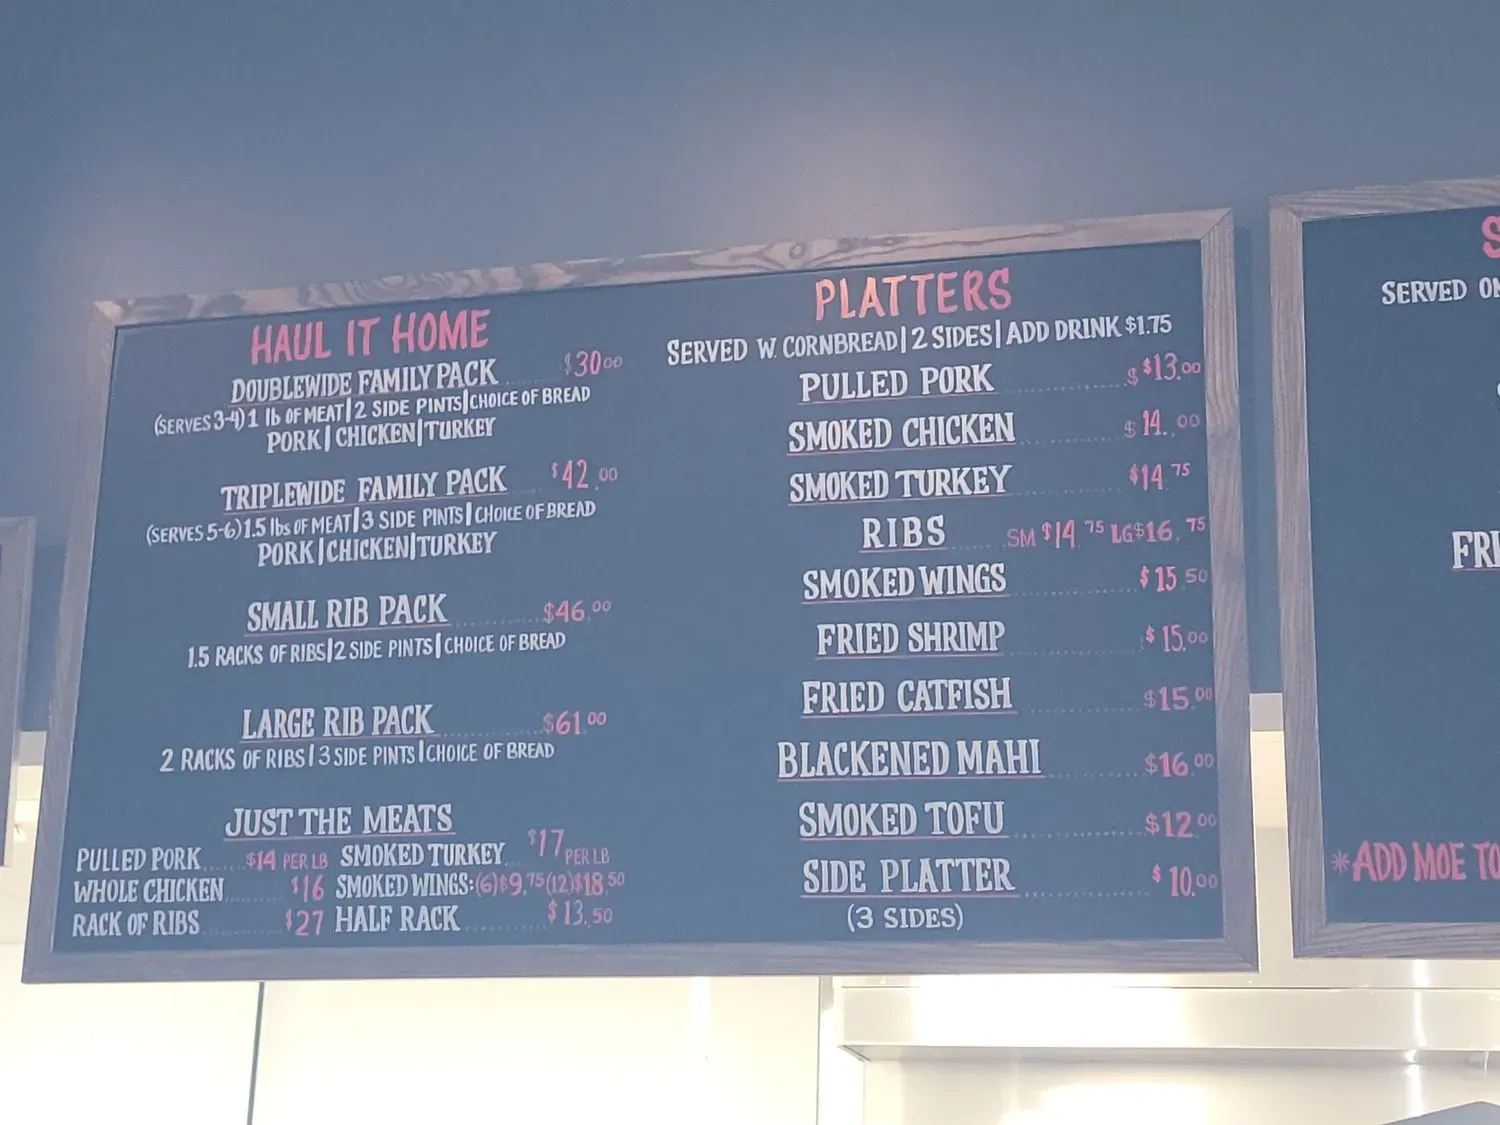 HAUL IT HOME
DOUBLEWIDE FAMILY PACK $30 00
(SERVES 3-4) 1 lb OF MEAT | 2 SIDE PINTS | CHOICE OF BREAD
PORK | CHICKEN | TURKEY
TRIPLEWIDE FAMILY PACK $42.00
(SERVES 5-6) 1.5 lbs OF MEAT | 3 SIDE PINTS | CHOICE OF BREAD
PORK | CHICKEN | TURKEY
SMALL RIB PACK ........ $46.00
1.5 RACKS OF RIBS | 2 SIDE PINTS | CHOICE OF BREAD
LARGE RIB PACK ........ $61.00
2 RACKS OF RIBS | 3 SIDE PINTS | CHOICE OF BREAD
JUST THE MEATS
PULLED PORK ..... $14 PER LB SMOKED TURKEY ... $17 PER LB
WHOLE CHICKEN ........ $16 SMOKED WINGS: (6) $9.75 (12) $18 50
RACK OF RIBS ......... $27 HALF RACK ......... $13.50
PLATTERS
SERVED W. CORNBREAD | 2 SIDES | ADD DRINK $1.75
PULLED PORK ............ $ $13.00
SMOKED CHICKEN ............ $14.00
SMOKED TURKEY ............ $14 75
RIBS ...... SM $14 75 LG $16.75
SMOKED WINGS ............ $15 50
FRIED SHRIMP ............ $15.00
FRIED CATFISH ............ $15.00
BLACKENED MAHI ............ $16.00
SMOKED TOFU ............ $12 00
SIDE PLATTER ............ $10.00
(3 SIDES)
S
SERVED ON
FRI
*ADD MOE TO